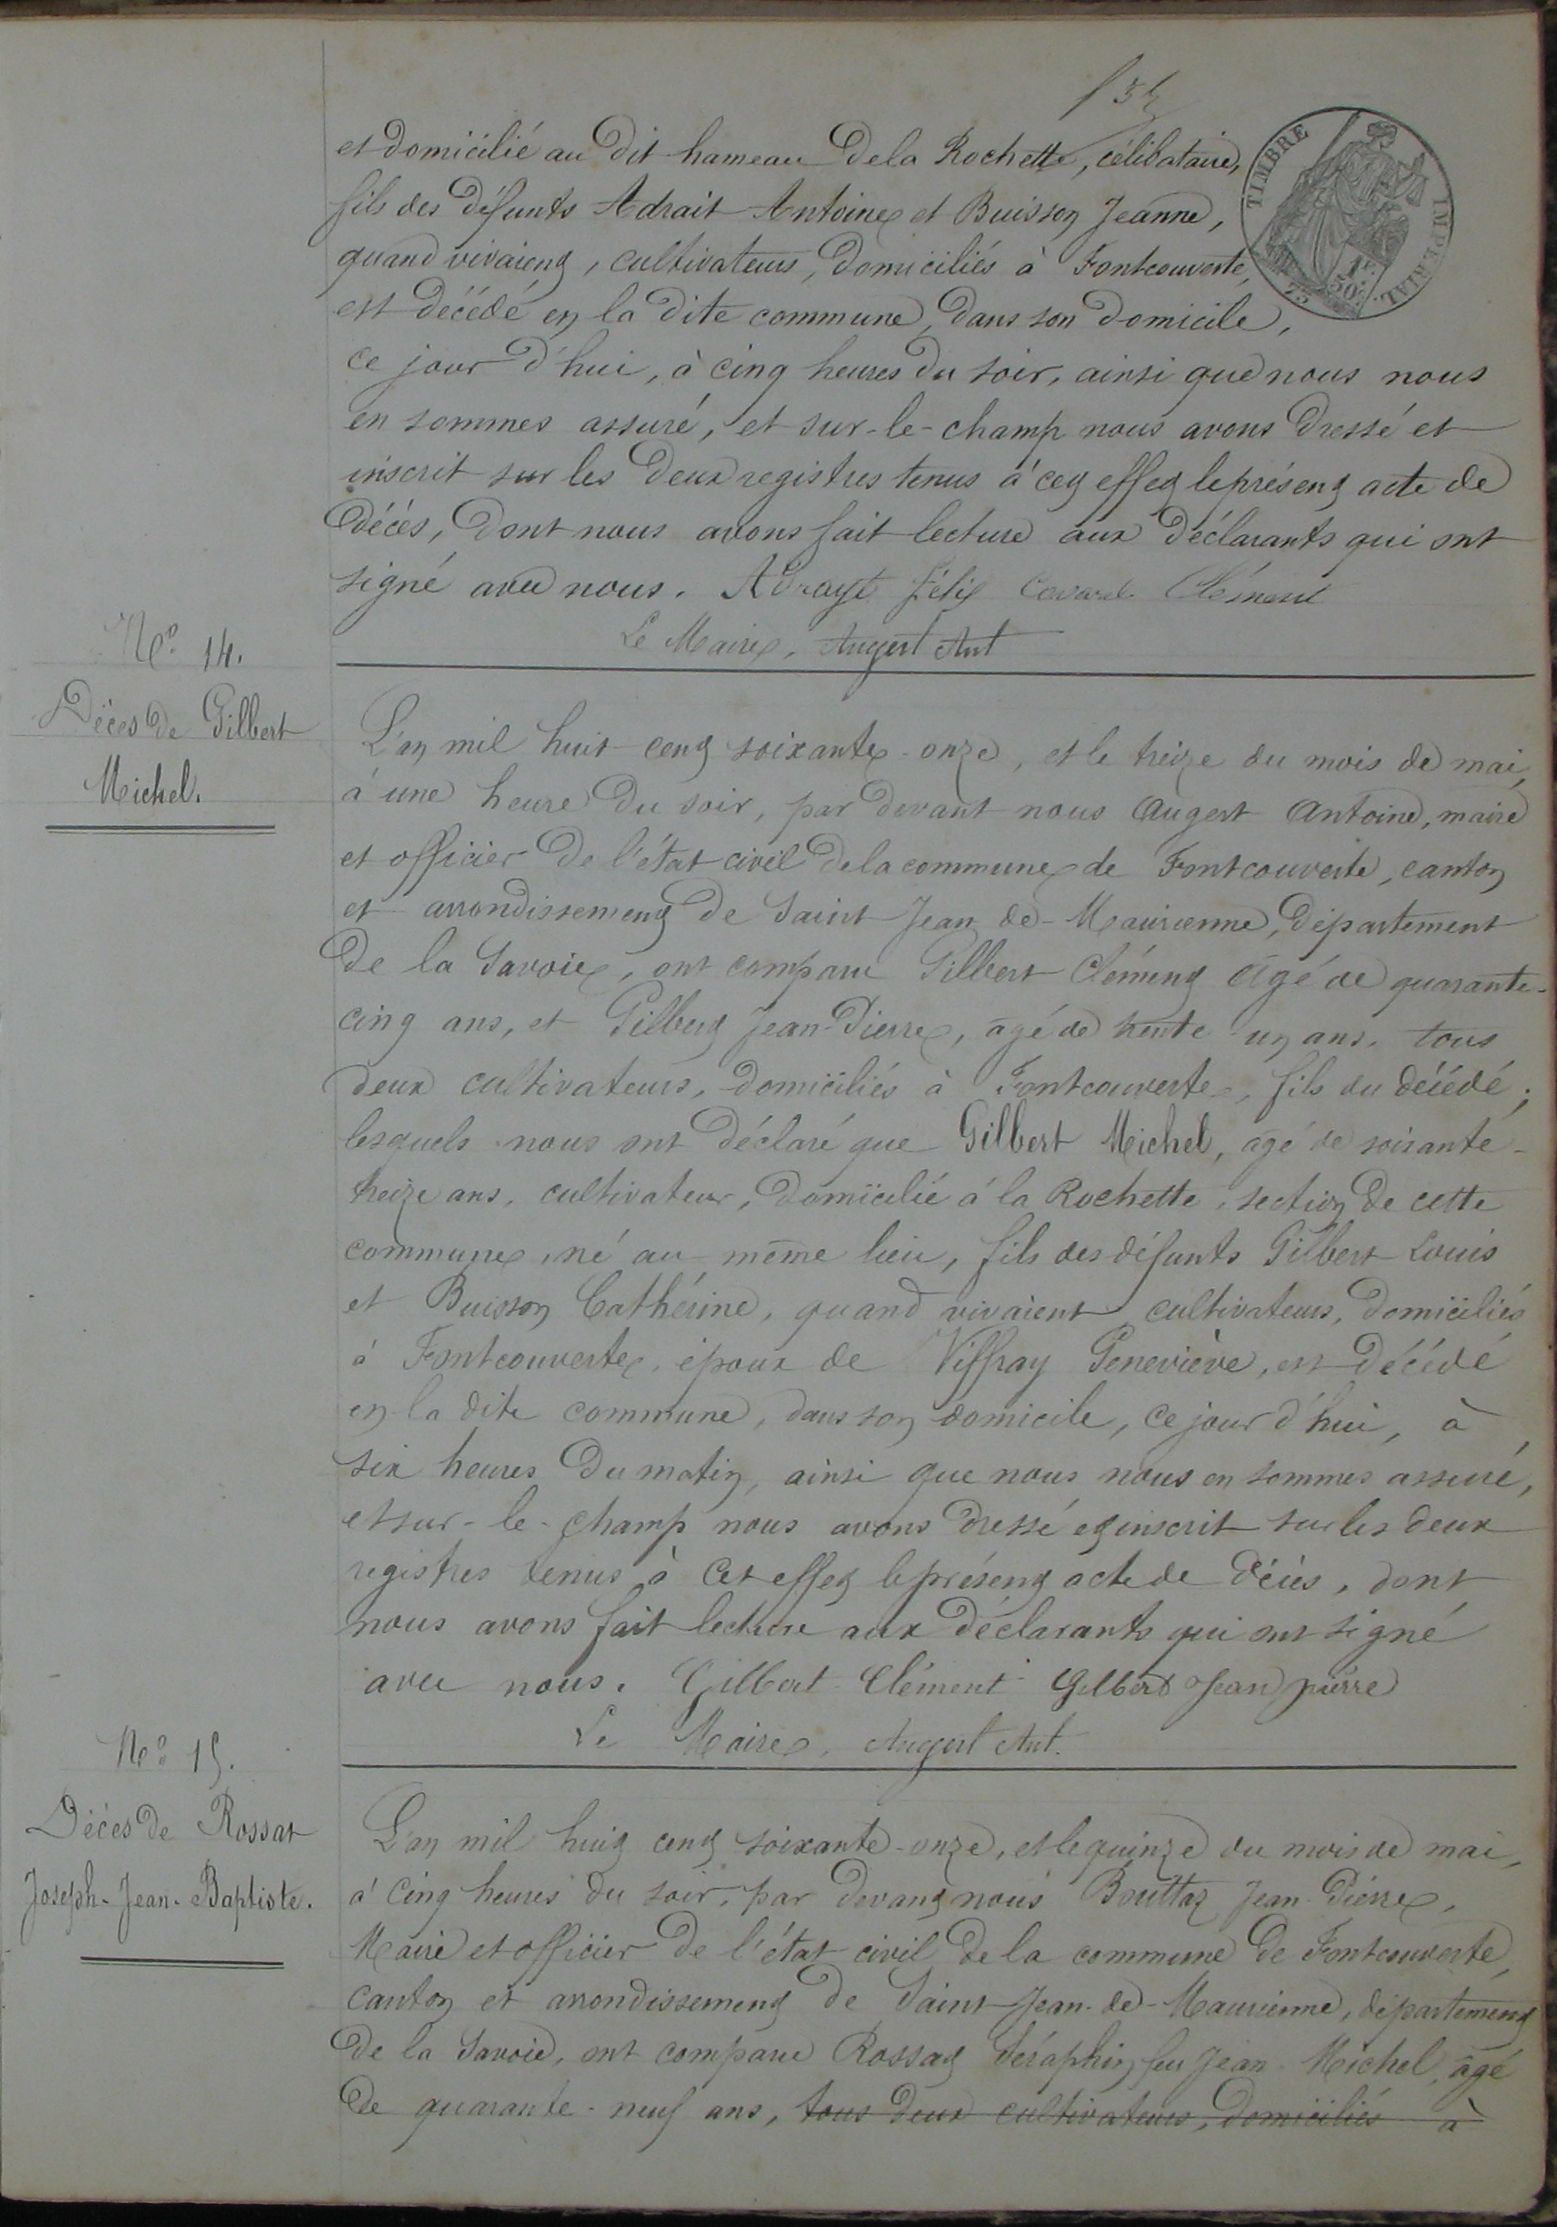 et domicilié au dit hameau de la Rochette, célibataire,
fils des défunts Adrait Antoine et Buisson Jeanne,
quand vivaient, cultivateurs, domiciliés à Fontcouverte,
est décédé en la dite commune, dans son domicile,
ce jour d'hui, à cinq heures du soir, ainsi que nous nous
en sommes assuré, et sur-le-champ nous avons dressé et
inscrit sur les deux registres tenus à cet effet le présent acte de
décès, dont nous avons fait lecture aux déclarants qui ont
signé avec nous. Adrayt félix Covarel Clément
Le Maire, Augert Ant
TIMBRE IMPERIAL
1F. 50C.
N° 14.
Décès de Gilbert
Michel.
L'an mil huit cent soixante-onze, et le treize du mois de mai,
à une heure du soir, par devant nous Augert Antoine, maire
et officier de l'état civil de la commune de Fontcouverte, canton
et arrondissement de Saint Jean de-Maurienne, département
de la Savoie, ont comparu Gilbert Clément âgé de quarante-
cinq ans, et Gilbert Jean-Pierre, âgé de trente-un ans, tous
deux cultivateurs, domiciliés à Fontcouverte, fils du décédé;
lesquels nous ont déclaré que Gilbert Michel, âgé de soixante-
treize ans, cultivateur, domicilié à la Rochette, section de cette
commune, né au même lieu, fils des défunts Gilbert Louis
et Buisson Cathérine, quand vivaient cultivateurs, domiciliés
à Fontcouverte, époux de Viffray Geneviève, est décédé
en la dite commune, dans son domicile, ce jour d'hui, à
six heures du matin, ainsi que nous nous en sommes assuré,
et sur-le-champ nous avons dressé et inscrit sur les deux
registres tenus à cet effet le présent acte de décès, dont
nous avons fait lecture aux déclarants qui ont signé
avec nous. Gilbert Clément Gilbert Jean pierre
Le Maire, Augert Ant.
N° 15.
Décès de Rossat
Joseph-Jean-Baptiste.
L'an mil huit cent soixante-onze, et le quinze du mois de mai,
à cinq heures du soir, par devant nous Bouttaz Jean-Pierre,
Maire et officier de l'état civil de la commune de Fontcouverte,
canton et arrondissement de Saint-Jean-de-Maurienne, département
de la Savoie, ont comparu Rossat Séraphin feu Jean-Michel, âgé
de quarante-neuf ans, tous deux cultivateurs, domiciliés à